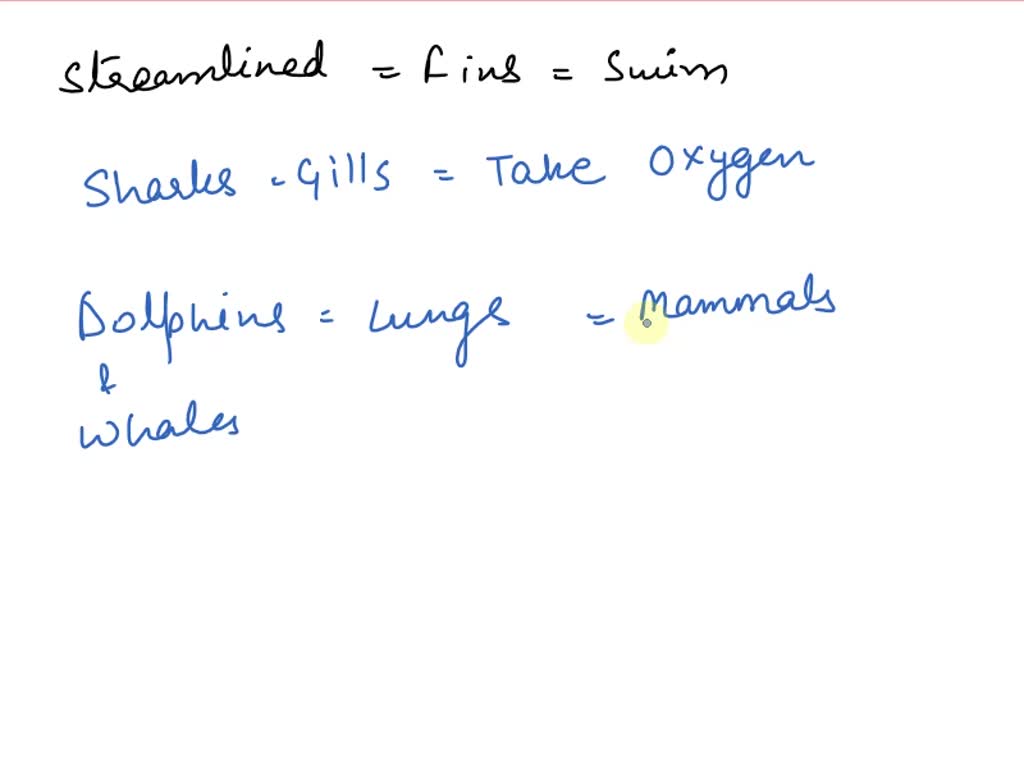 Streamlined = Fins = Swim
Sharks - Gills = Take Oxygen
Dolphins = Lungs = Mammals
&
Whales